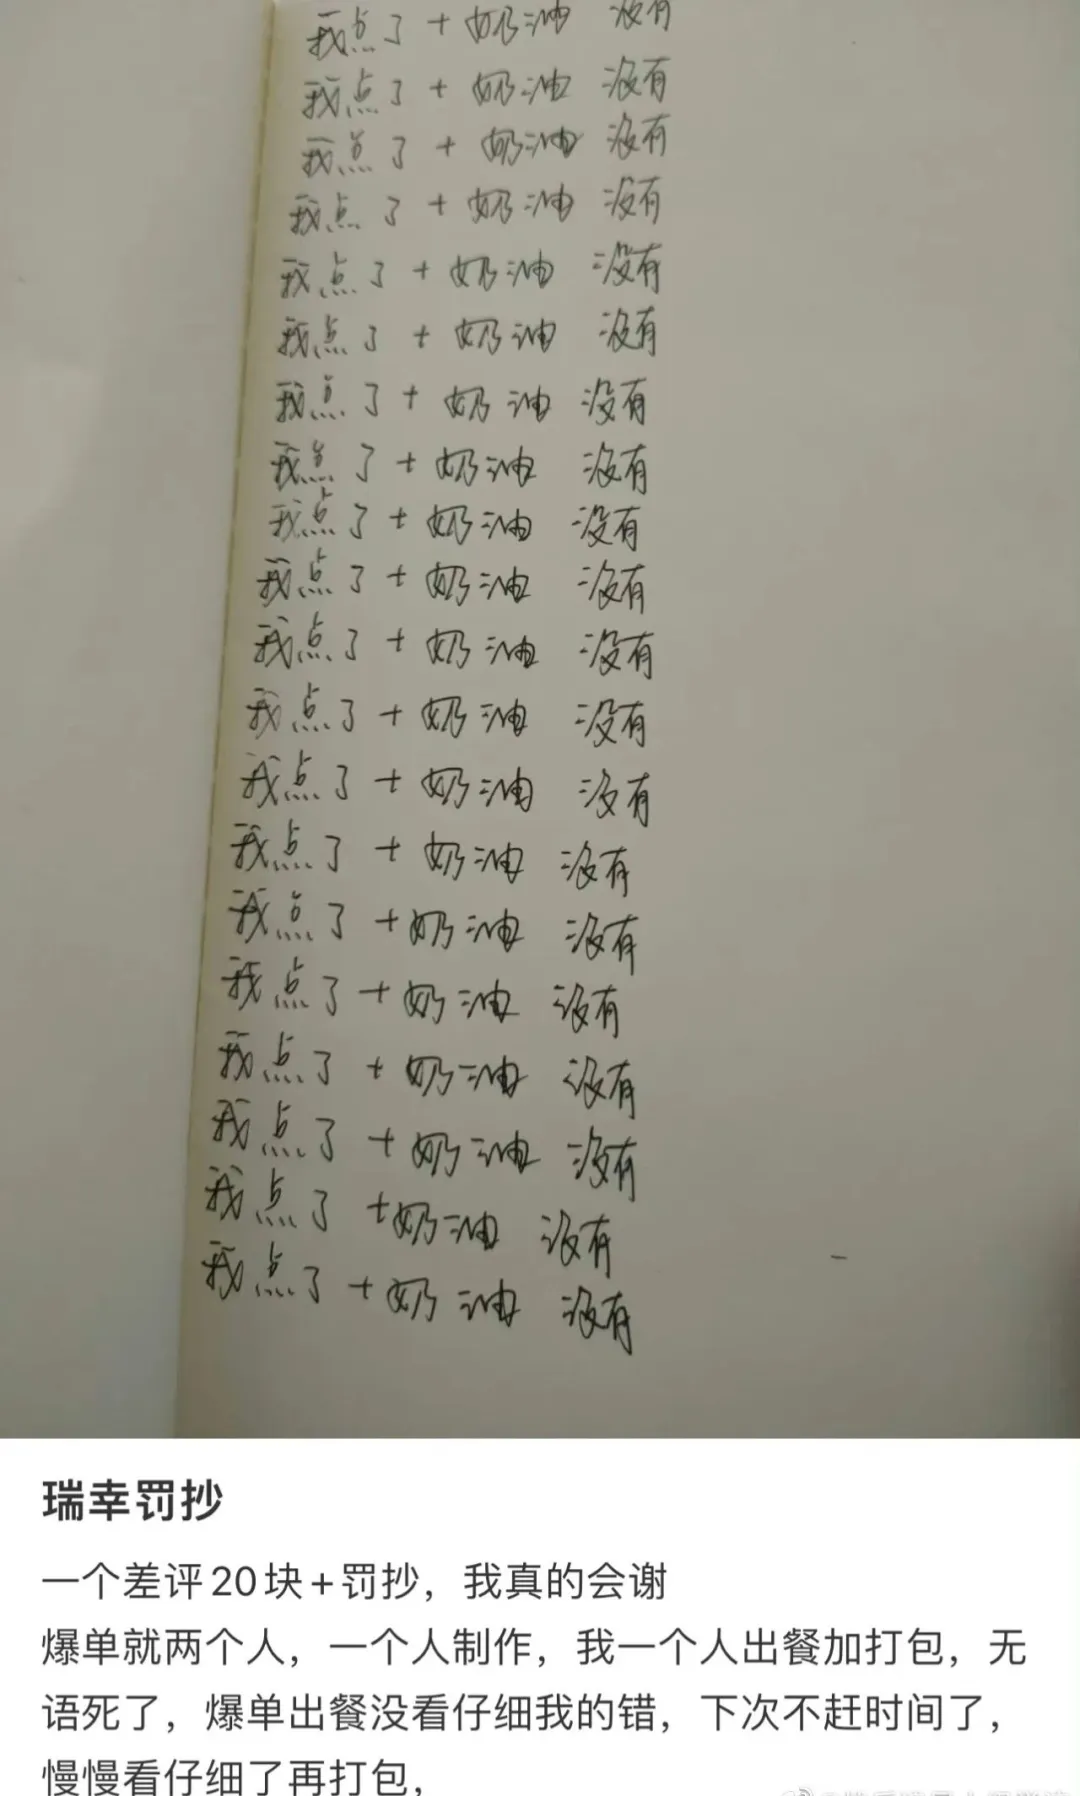 我点了+奶油 没有
我点了+奶油 没有
我点了+奶油 没有
我点了+奶油 没有
我点了+奶油 没有
我点了+奶油 没有
我点了+奶油 没有
我点了+奶油 没有
我点了+奶油 没有
我点了+奶油 没有
我点了+奶油 没有
我点了+奶油 没有
我点了+奶油 没有
我点了+奶油 没有
我点了+奶油 没有
我点了+奶油 没有
我点了+奶油 没有
我点了+奶油 没有
我点了+奶油 没有
我点了+奶油 没有
瑞幸罚抄
一个差评20块+罚抄，我真的会谢
爆单就两个人，一个人制作，我一个人出餐加打包，无
语死了，爆单出餐没看仔细我的错，下次不赶时间了，
慢慢看仔细了再打包，